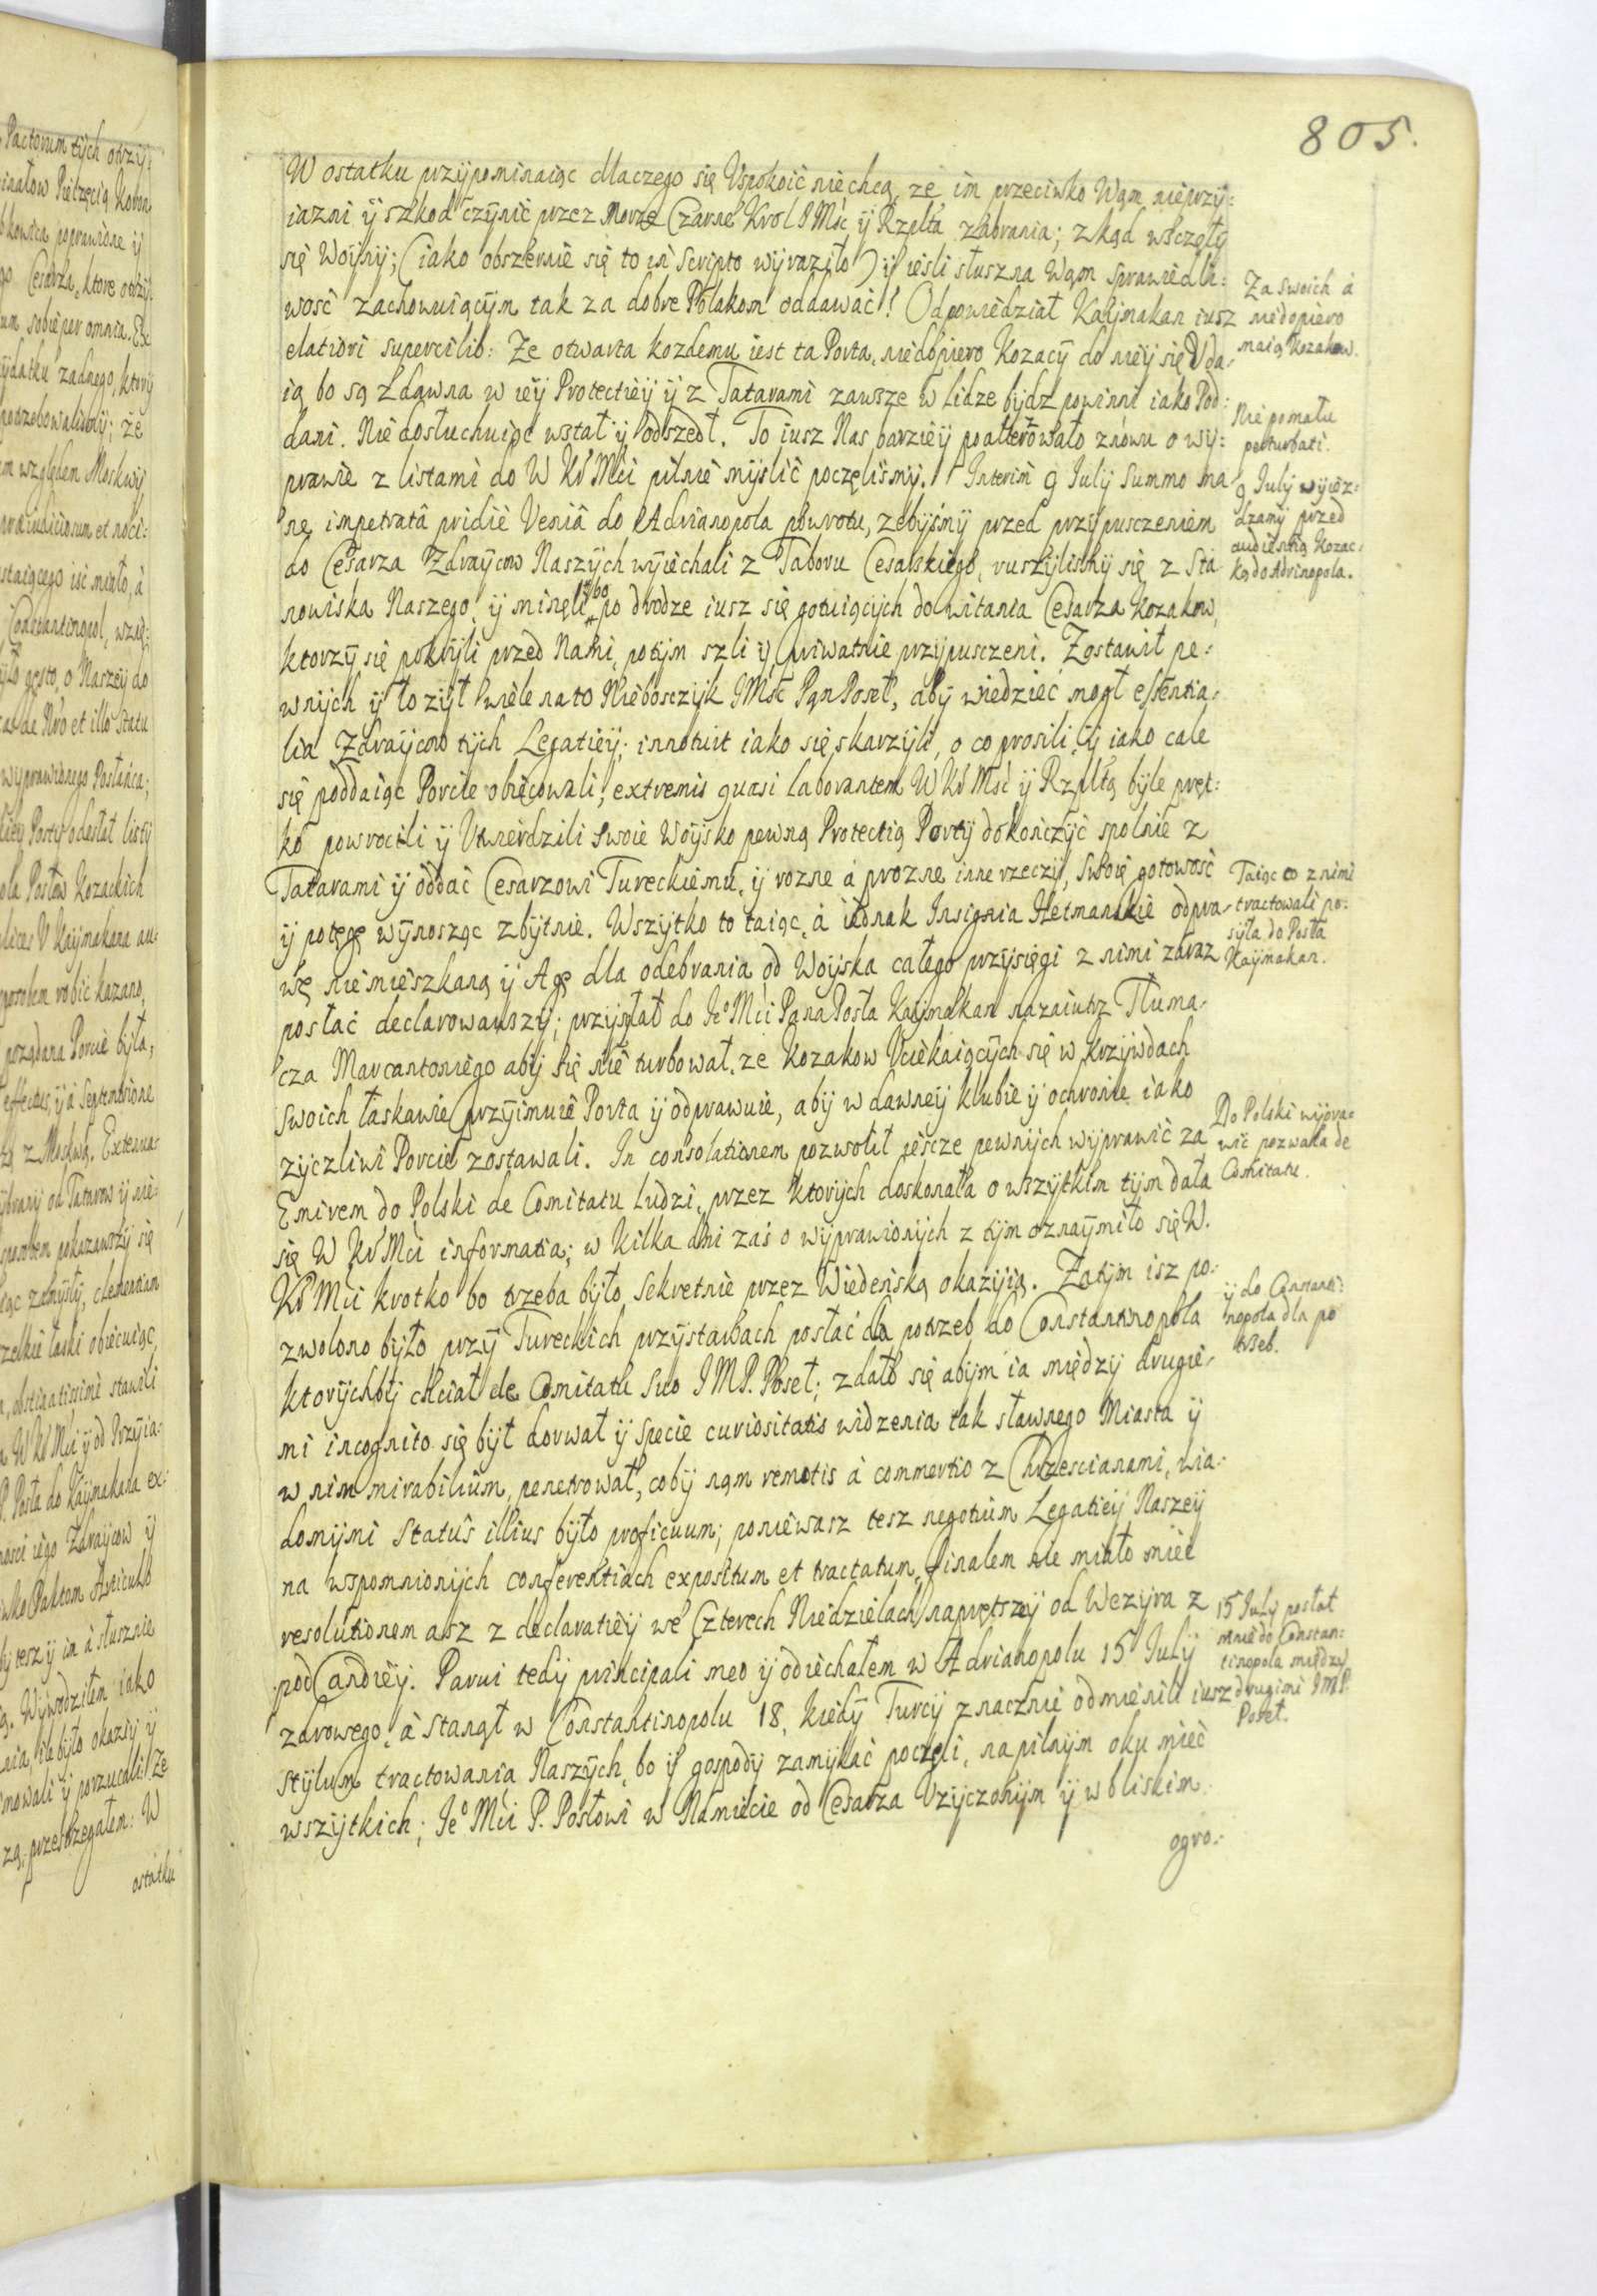 805.
W ostatku przÿpominaiąc dlaczego się Vspokoić niechcą, ze im przeciwko Wąm nieprzÿ:
iazni ÿ szkod czÿnić przez Morze Czarne Krol J Mśc ÿ Rzplta zabrania; zkąd wsczęłÿ
się Woÿnÿ; (iako obszernie się to in Scripto wÿraziło) ÿ iesli słuszna Wąm sprawiedli:
wość zachowuiącÿm tak za dobre Polakom oddawać! Odpowiedział Kaÿmakan iusz
elatiori supercilio: Ze otwarta kozdemu iest ta Porta, niedopiero Kozacÿ do nieÿ się Vda-
ią bo są zdawna w ieÿ Protectieÿ ÿ z Tatarami zawsze w Lidze bÿdz powinni iako Pod:
dani. Nie dosłuchuiąc wstał ÿ odszedł. To iusz Nas barzieÿ poalterowało znowu o wÿ:
prawie z listami do W Kr Mći pilnie mÿslić poczęlismÿ. Interim 9 Julÿ Summo ma-
ne impetratâ pridie Veniâ do Adrianopola powrotu, zebÿsmÿ przed przÿpusczeniem
do Cesarza Zdraÿcow Naszÿch wÿiechali z Taboru Cesarskiego, ruszÿlismÿ się z Sta
nowiska Naszego, ÿ minęli ÿbo po drodze iusz się gotuiącÿch do witania Cesarza Kozakow,
ktorzÿ się pokrÿli przed Nami, potÿm szli ÿ priwatnie przÿpusczeni. Zostawił pe:
wnÿch ÿ łozÿł wiele na to Nieboscżÿk JMśc Pąn Poseł, abÿ wiedzieć mogł essentia-
lia Zdraÿcow tÿch Legatieÿ; innotuit iako się skarzÿli, o co prosili, ÿ iako cale
się poddaiąc Porcie obiecowali, extremis quasi laborantem W Kr Mść ÿ Rzpltą bÿle pręt:
ko powrocili ÿ Vtwierdzili swoie Woÿsko pewną Protectią Portÿ dokończÿć spolnie z
Tatarami ÿ oddać Cesarzowi Tureckiemu, ÿ rozne á prozne inne rzeczÿ, Swoię gotowość
ÿ potęgę wÿnosząc zbÿtnie. Wszÿtko to taiąc, á iednak Insignia Hetmanskie odpra-
wę niemieszkaną ÿ Agę dla odebrania od Woÿska całego przÿsięgi z nimi zaraz
posłać declarowawszÿ; przÿsłał do Jeo Mći Pana Posła Kaÿmakan nazaiutrz Tłuma-
cza Marcantoniego abÿ się nie turbował, ze Kozakow Vciekaiącÿch się w krzÿwdach
swoich łaskawie przÿimuie Porta ÿ odprawuie, abÿ w dawneÿ klubie ÿ ochronie iako
zÿczliwi Porcie zostawali. In consolationem pozwolił iescze pewnÿch wÿprawić za
Emirem do Polski de Comitatu ludzi, przez ktorÿch doskonała o wszÿtkim tÿm dała
się W Kr Mći informatia; w kilka dni zaś o wÿprawionÿch z tÿm oznaÿmiło się W.
Kr Mći krotko bo trzeba bÿło Sekretnie przez Wiedeńską okazÿią. Zatÿm isz po-
zwolono bÿło przÿ Tureckich przÿstawach posłać dla potrzeb do Constantinopola
ktorÿchbÿ chciał de Comitatu Suo J M P. Poseł; zdało się abÿm ia międzÿ drugie-
mi incognito się bÿł dorwał ÿ specie curiositatis widzenia tak sławnego Miasta ÿ
w nim mirabilium, penetrował, cobÿ nąm remotis à commertio z Chrzescianami, wia-
domÿmi Statûs illius bÿło proficuum; poniewasz tesz negotium Legatieÿ Naszeÿ
na wspomnionÿch conferentiach expositum et tractatum, finalem nie miało mieć
resolutionem asz z declaratieÿ we Czterech Niedzielach naprętszeÿ od Wezÿra z
pod Candieÿ. Parui tedÿ principali meo ÿ odiechałem w Adrianopolu 15 Julÿ
zdrowego, á Stanął w Constantinopolu 18, kiedÿ Turcÿ znacznie odmienili iusz
Stÿlum tractowania Naszÿch, bo ÿ gospodÿ zamÿkać poczęli, na pilnÿm oku mieć
wszÿtkich; Jeo Mći P. Posłowi w Namiecie od Cesarza Vzÿczonÿm ÿ w bliskim
ogro-
Za swoich á
niedopiero
maią Kozakow.
Nie pomału
perturbati.
9 Julÿ wÿiez:
dzamÿ przed
audientią Kozac:
ką do Adrinopola.
Taiąc co z nimi
tractowali po:
sÿła do Posła
Kaÿmakan.
Do Polski wÿpra:
wić pozwala de
Comitatu.
ÿ do Constanti:
nopola dla po
trzeb.
15 Julÿ posłał
mnie do Constan:
tinopola międzÿ
drugimi J M P.
Poseł.
Pactorum tÿch otrzÿ:
Pieczęcią Koron
poprawione ÿ
Cesarza, ktore
sobie per omnia. Ex
ÿdatku zadnego, ktorÿ
potrzebowalismÿ; że
względem Moskwÿ
et noci:
staiącego isc miało, á
Constantinopol, wzię:
gęsto, o Naszeÿ do
et illo Statu
wÿprawionego Posłańca;
Portÿ odesłał listÿ
Posłow Kozackich
V Kaÿmakana au:
robić kazano,
poządana Porcie bÿła,
effectus, ÿ á Septentrione
z Moskwą. Extenua:
od Tatarow ÿ nie:
sposobem pokazawszÿ się
zamÿsłÿ, clementiam
łaski obiecuiąc
obstinatissimi stawili
W Kr Mći ÿ od Przÿia:
P. Posła do Kaÿmakana ex:
iego Zdraÿcow ÿ
Paktom Articuło
tesz ÿ im á słusznie
Wÿwodziłem iako
bÿło okaziÿ ÿ
ÿ porzucali Ze
przestrzegałem: W
ostatku